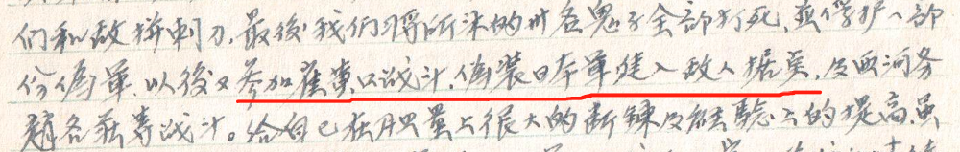 们和敌拼刺刀，最後我们将所来的卅名鬼子全部打死，并俘护一部
份偽軍，以後又参加崔黄口战斗，偽装日本軍進入敌人据点，及西河务
趙各庄等战斗。给自己在胆量上很大的断鍊及经驗上的提高，虽